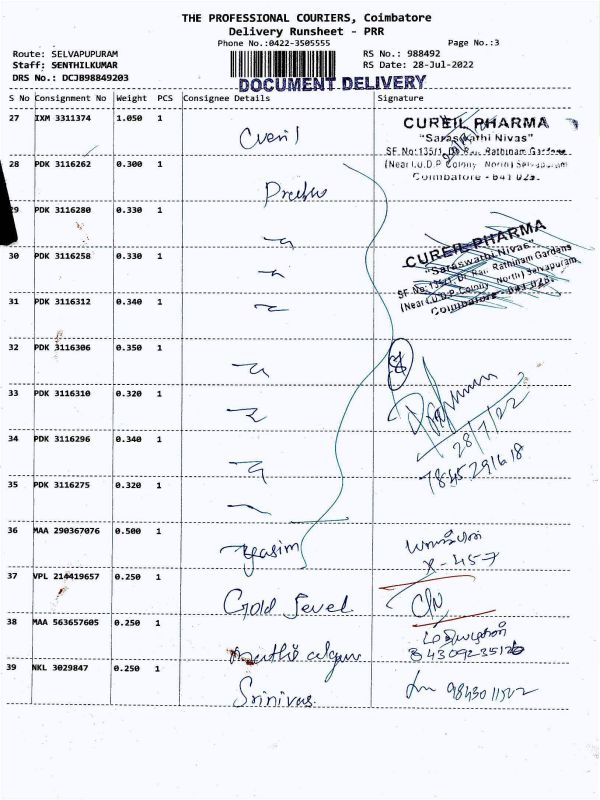 THE PROFESSIONAL COURIERS, Coimbatore
Delivery Runsheet - PRR
Phone No.:0422-3505555
Page No.:3
Route: SELVAPUPURAM
RS No.: 988492
Staff: SENTHILKUMAR
RS Date: 28-Jul-2022
DRS No.: DCJB98849203
DOCUMENT DELIVERY
S No Consignment No Weight PCS Consignee Details Signature
27 IXM 3311374 1.050 1
CUREIL PHARMA
"Saraswathi Nivas"
SF.No:135/1, Dr. Rai. Rathinam Gardens
(Near I.U.D.P Colony North) Selvapuram
Coimbatore - 641 026.
28 PDK 3116262 0.300 1
29 PDK 3116280 0.330 1
30 PDK 3116258 0.330 1
CUREIL PHARMA
"Saraswathi Nivas"
SF.No:135/1, Dr. Rai. Rathinam Gardens
(Near I.U.D.P Colony, North) Selvapuram
Coimbatore - 641 026.
31 PDK 3116312 0.340 1
32 PDK 3116306 0.350 1
33 PDK 3116310 0.320 1
28/7/22
34 PDK 3116296 0.340 1
7845291618
35 PDK 3116275 0.320 1
36 MAA 290367076 0.500 1 Yasim
X-457
37 VPL 214419657 0.250 1 Gold Jewel
38 MAA 563657605 0.250 1
39 NKL 3029847 0.250 1 Srinivas